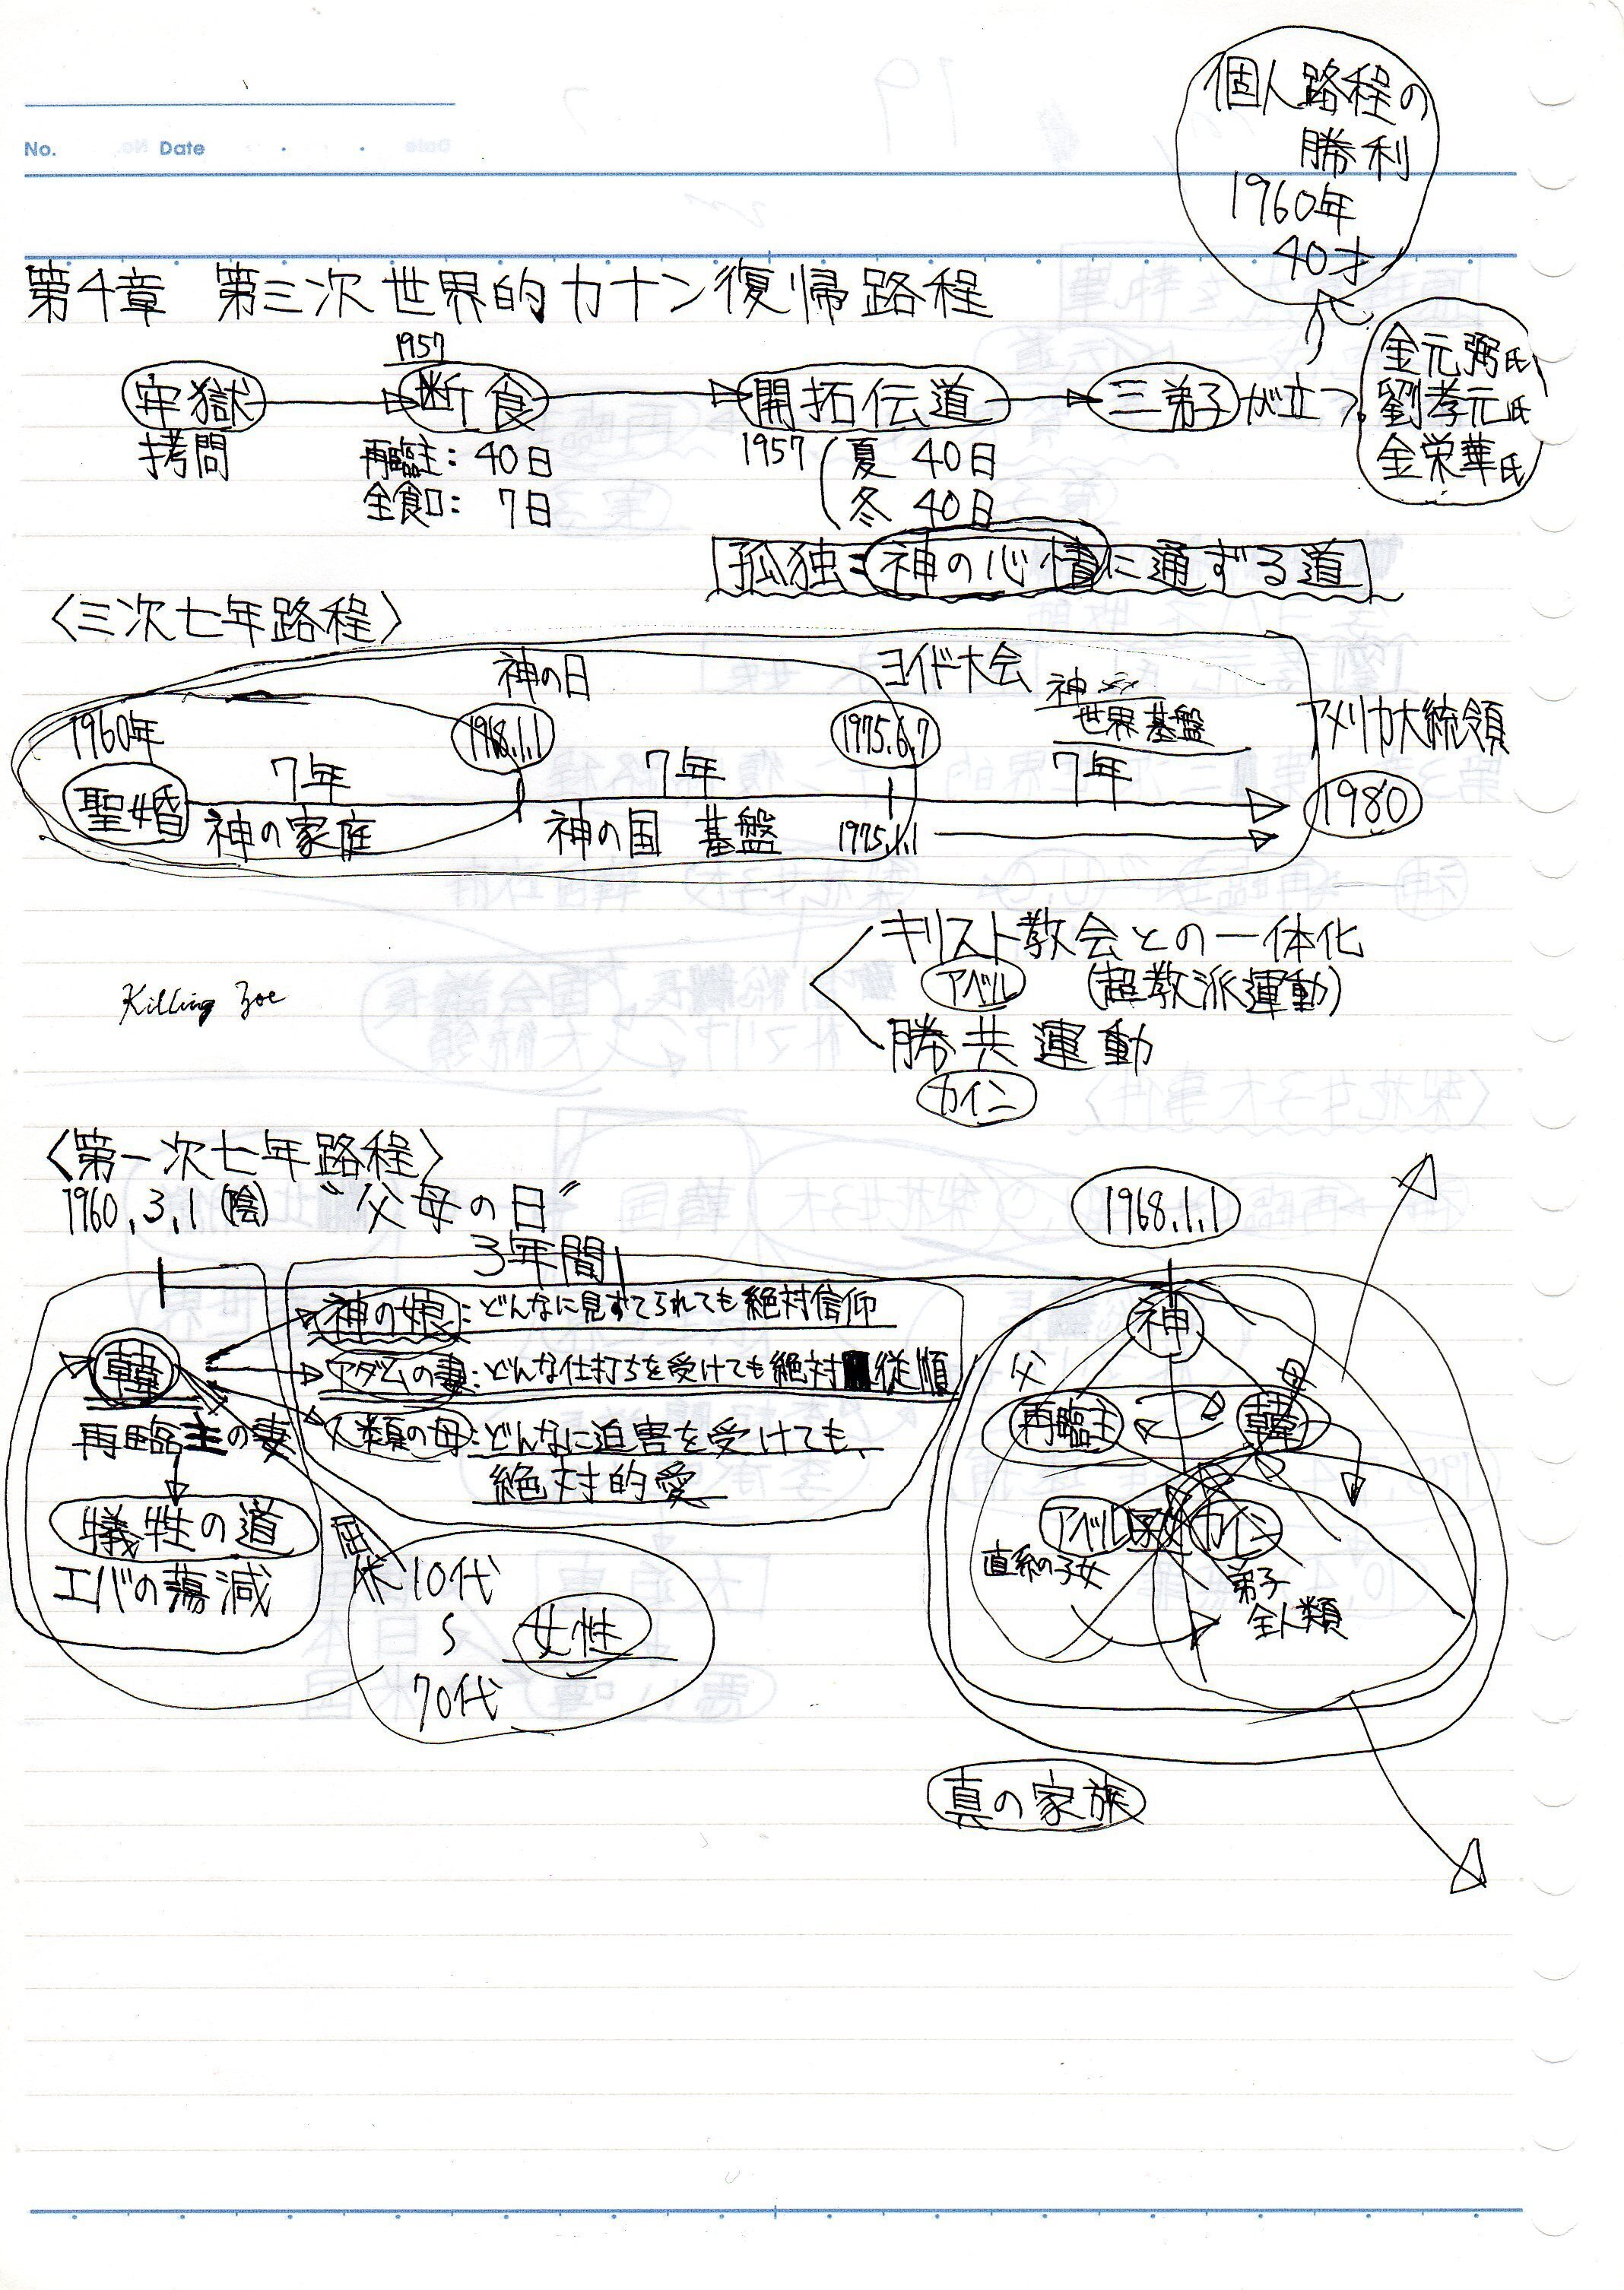 個人路程の
勝利
1960年
40才
No. Date
第4章 第三次世界的カナン復帰路程
1957
牢獄 断食 開拓伝道 三弟子が立つ。
金元弼氏
劉孝元氏
金栄華氏
拷問
再臨主：40日
全食口：7日
1957 夏 40日
冬 40日
孤独：神の心情に通ずる道
〈三次七年路程〉
神の日 ヨイド大会 神
世界基盤
1960年 1968.1.1 1975.6.7 アメリカ大統領
7年 7年 7年
聖婚 神の家庭 神の国 基盤 1975.1.1 1980
キリスト教会との一体化
アベル (超教派運動)
Killing Zoe
勝共運動
カイン
〈第一次七年路程〉
1960.3.1(陰) "父母の日" 1968.1.1
3年間
神の娘：どんなに見すてられても絶対信仰
韓 アダムの妻：どんな仕打ちを受けても絶対従順
人類の母：どんなに迫害を受けても、
絶対的愛
再臨主の妻
犠牲の道
エバの蕩減
10代
70代
女性
神
父 母
再臨主 韓
アベル 子女 カイン
直系の子女 弟子
全人類
真の家族